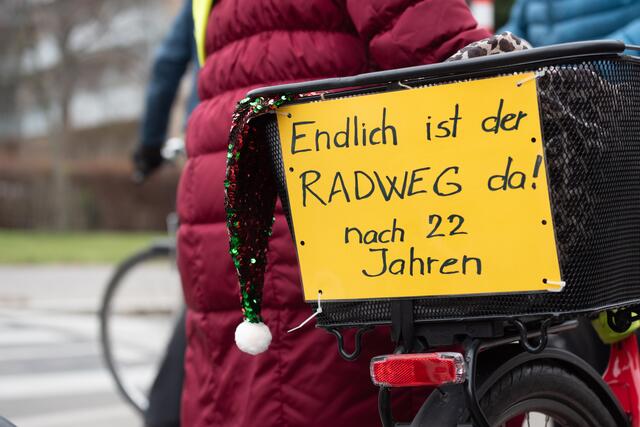 Endlich ist der
RADWEG da!
nach 22
Jahren